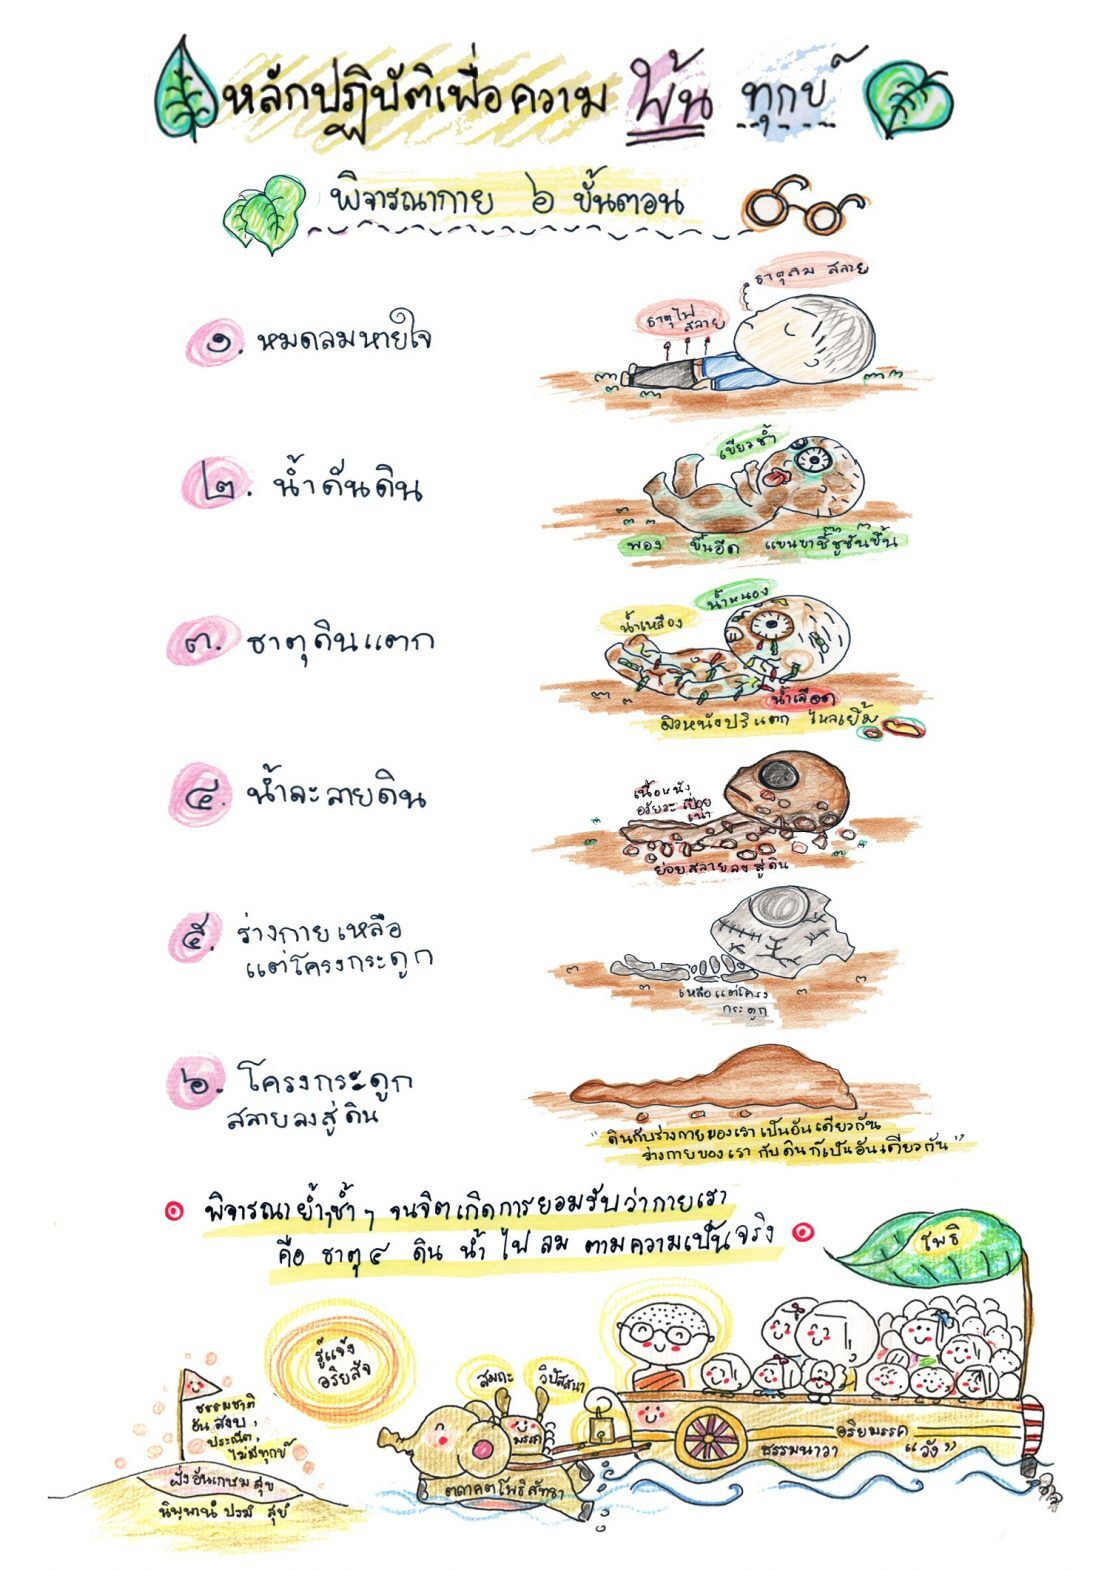 หลักปฏิบัติเพื่อความ พ้น ทุกข์
พิจารณากาย ๖ ขั้นตอน
๑. หมดลมหายใจ
ธาตุลม สลาย
ธาตุไฟ
สลาย
๒. น้ำดันดิน
เขียวช้ำ
พอง ขึ้นอืด แขนขาชี้ชูชันขึ้น
๓. ธาตุดินแตก
น้ำเหลือง
น้ำหนอง
น้ำเลือด
ผิวหนังปริแตก ไหลเยิ้ม
๔. น้ำละลายดิน
เนื้อหนัง
อวัยวะ เปื่อย
เน่า
ย่อยสลายลงสู่ดิน
๕. ร่างกายเหลือ
แต่โครงกระดูก
เหลือแต่โครง
กระดูก
๖. โครงกระดูก
สลายลงสู่ดิน
"ดินกับร่างกายของเราเป็นอันเดียวกัน
ร่างกายของเรา กับดินก็เป็นอันเดียวกัน"
พิจารณาย้ำๆซ้ำๆ จนจิตเกิดการยอมรับว่ากายเรา
คือ ธาตุ ๔ ดิน น้ำ ไฟ ลม ตามความเป็นจริง
โพธิ
รู้แจ้ง
อริยสัจ
สมถะ
วิปัสสนา
มรรค
ธรรมชาติ
อันสงบ,
ประณีต,
ไม่มีทุกข์
ฝั่งอันเกษมสุข
นิพพานํ ปรมํ สุขํ
ตถาคตโพธิสัทธา
ธรรมนาวา
อริยมรรค
"วัง"